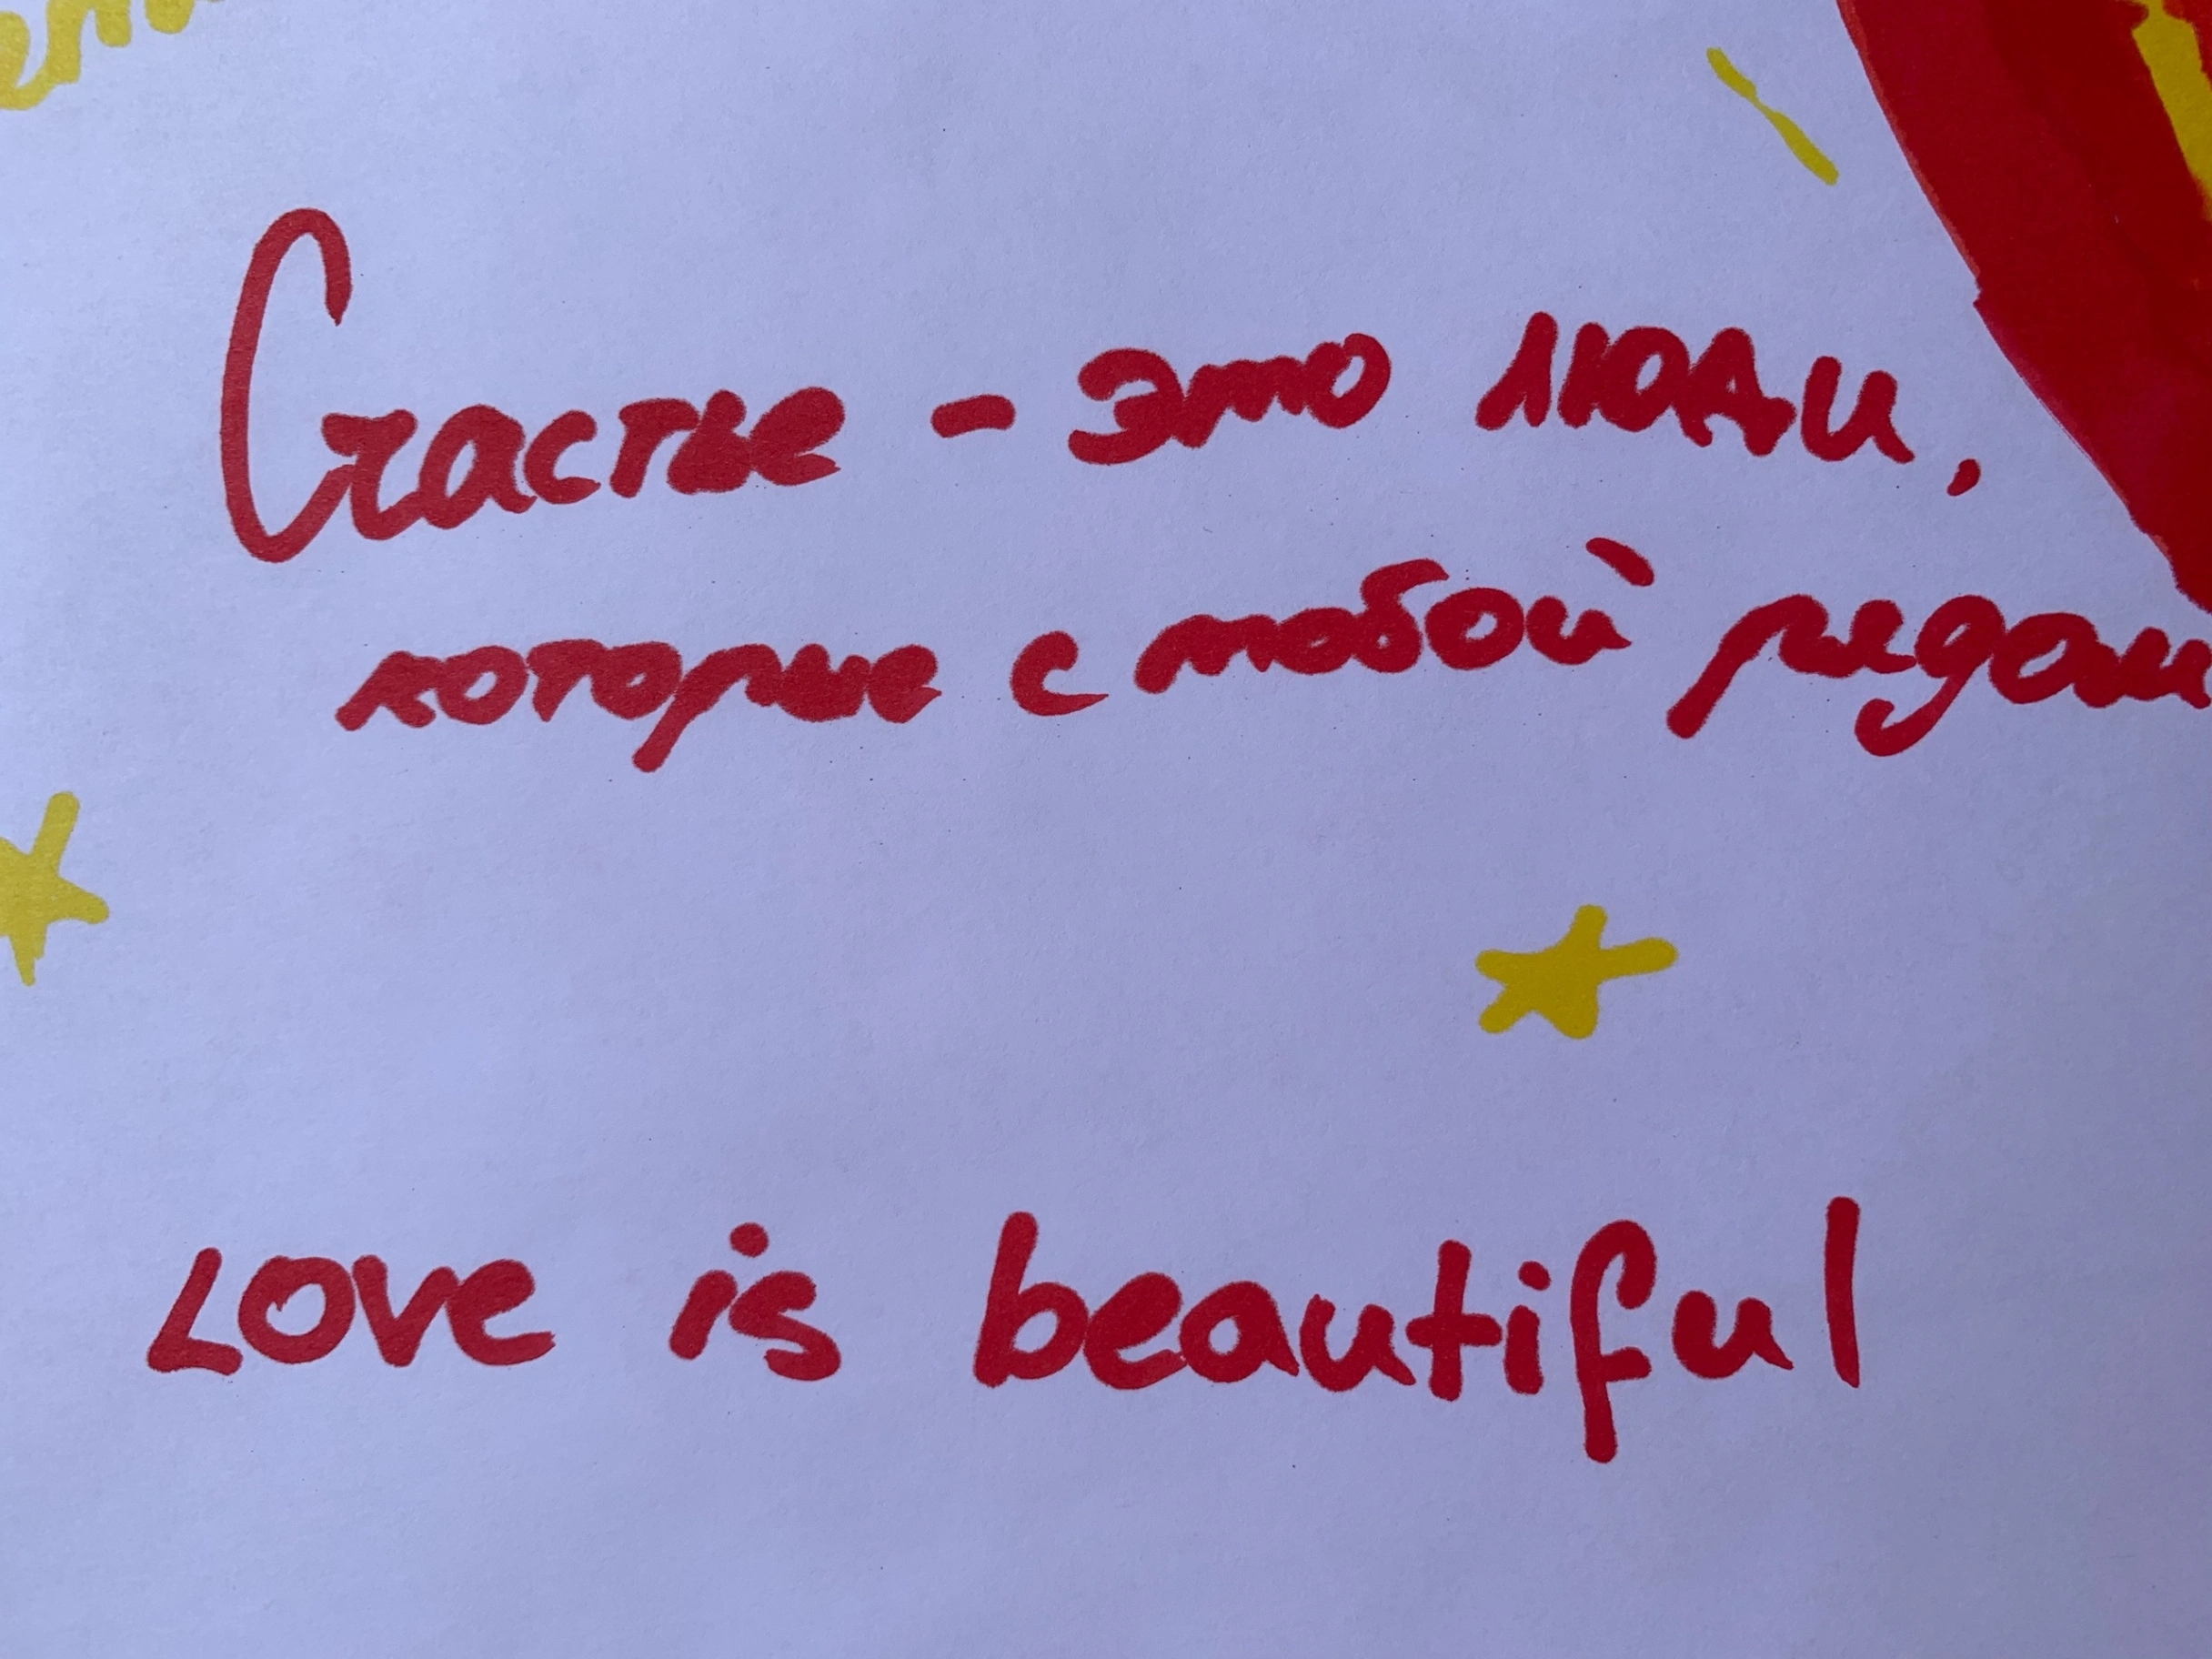 Счастье - это люди,
которые с тобой рядом
Love is beautiful